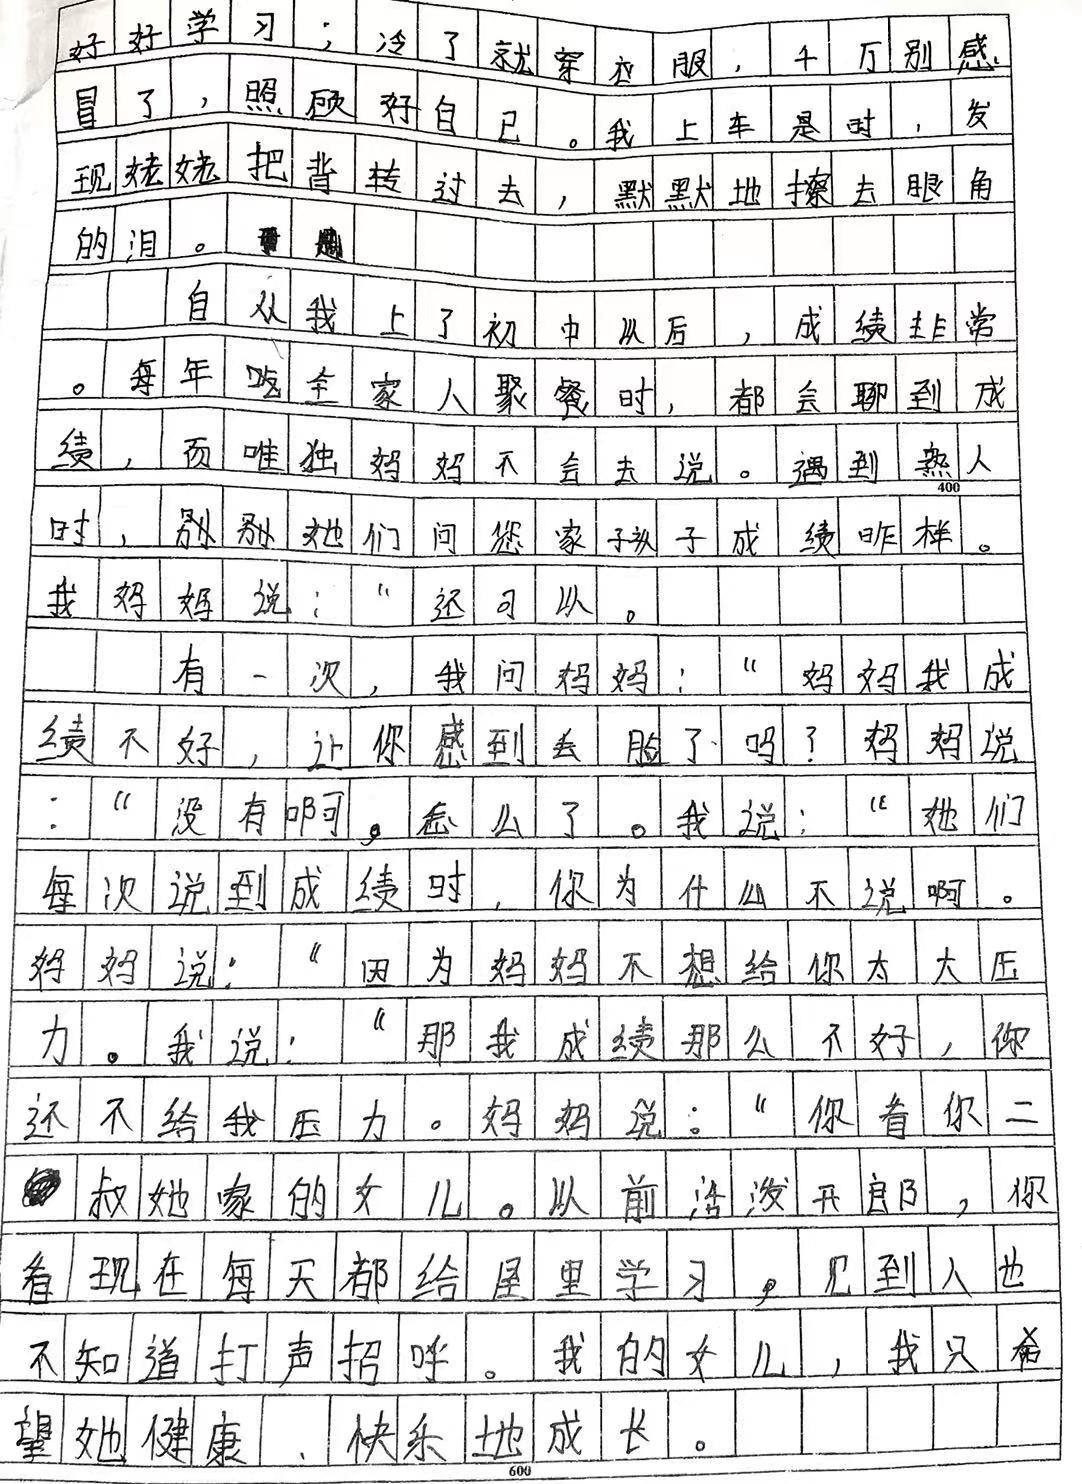 好好学习；冷了就穿衣服，千万别感
冒了，照顾好自已。我上车是时，发
现姥姥把背转过去，默默地擦去眼角
的泪。
自从我上了初中以后，成绩非常
。每年吃全家人聚餐时，都会聊到成
绩，而唯独妈妈不会去说。遇到熟人
400
时，别别她们问您家孩子成绩咋样。
我妈妈说：“还可以。
有一次，我问妈妈：“妈妈我成
绩不好，让你感到丢脸了吗？妈妈说
：“没有啊，怎么了。我说：“她们
每次说到成绩时，你为什么不说啊。
妈妈说：“因为妈妈不想给你太大压
力。我说：“那我成绩那么不好，你
还不给我压力。妈妈说：“你看你二
叔她家的女儿。以前活泼开朗，你
看现在每天都给屋里学习，见到人也
不知道打声招呼。我的女儿，我只希
望她健康、快乐地成长。
600